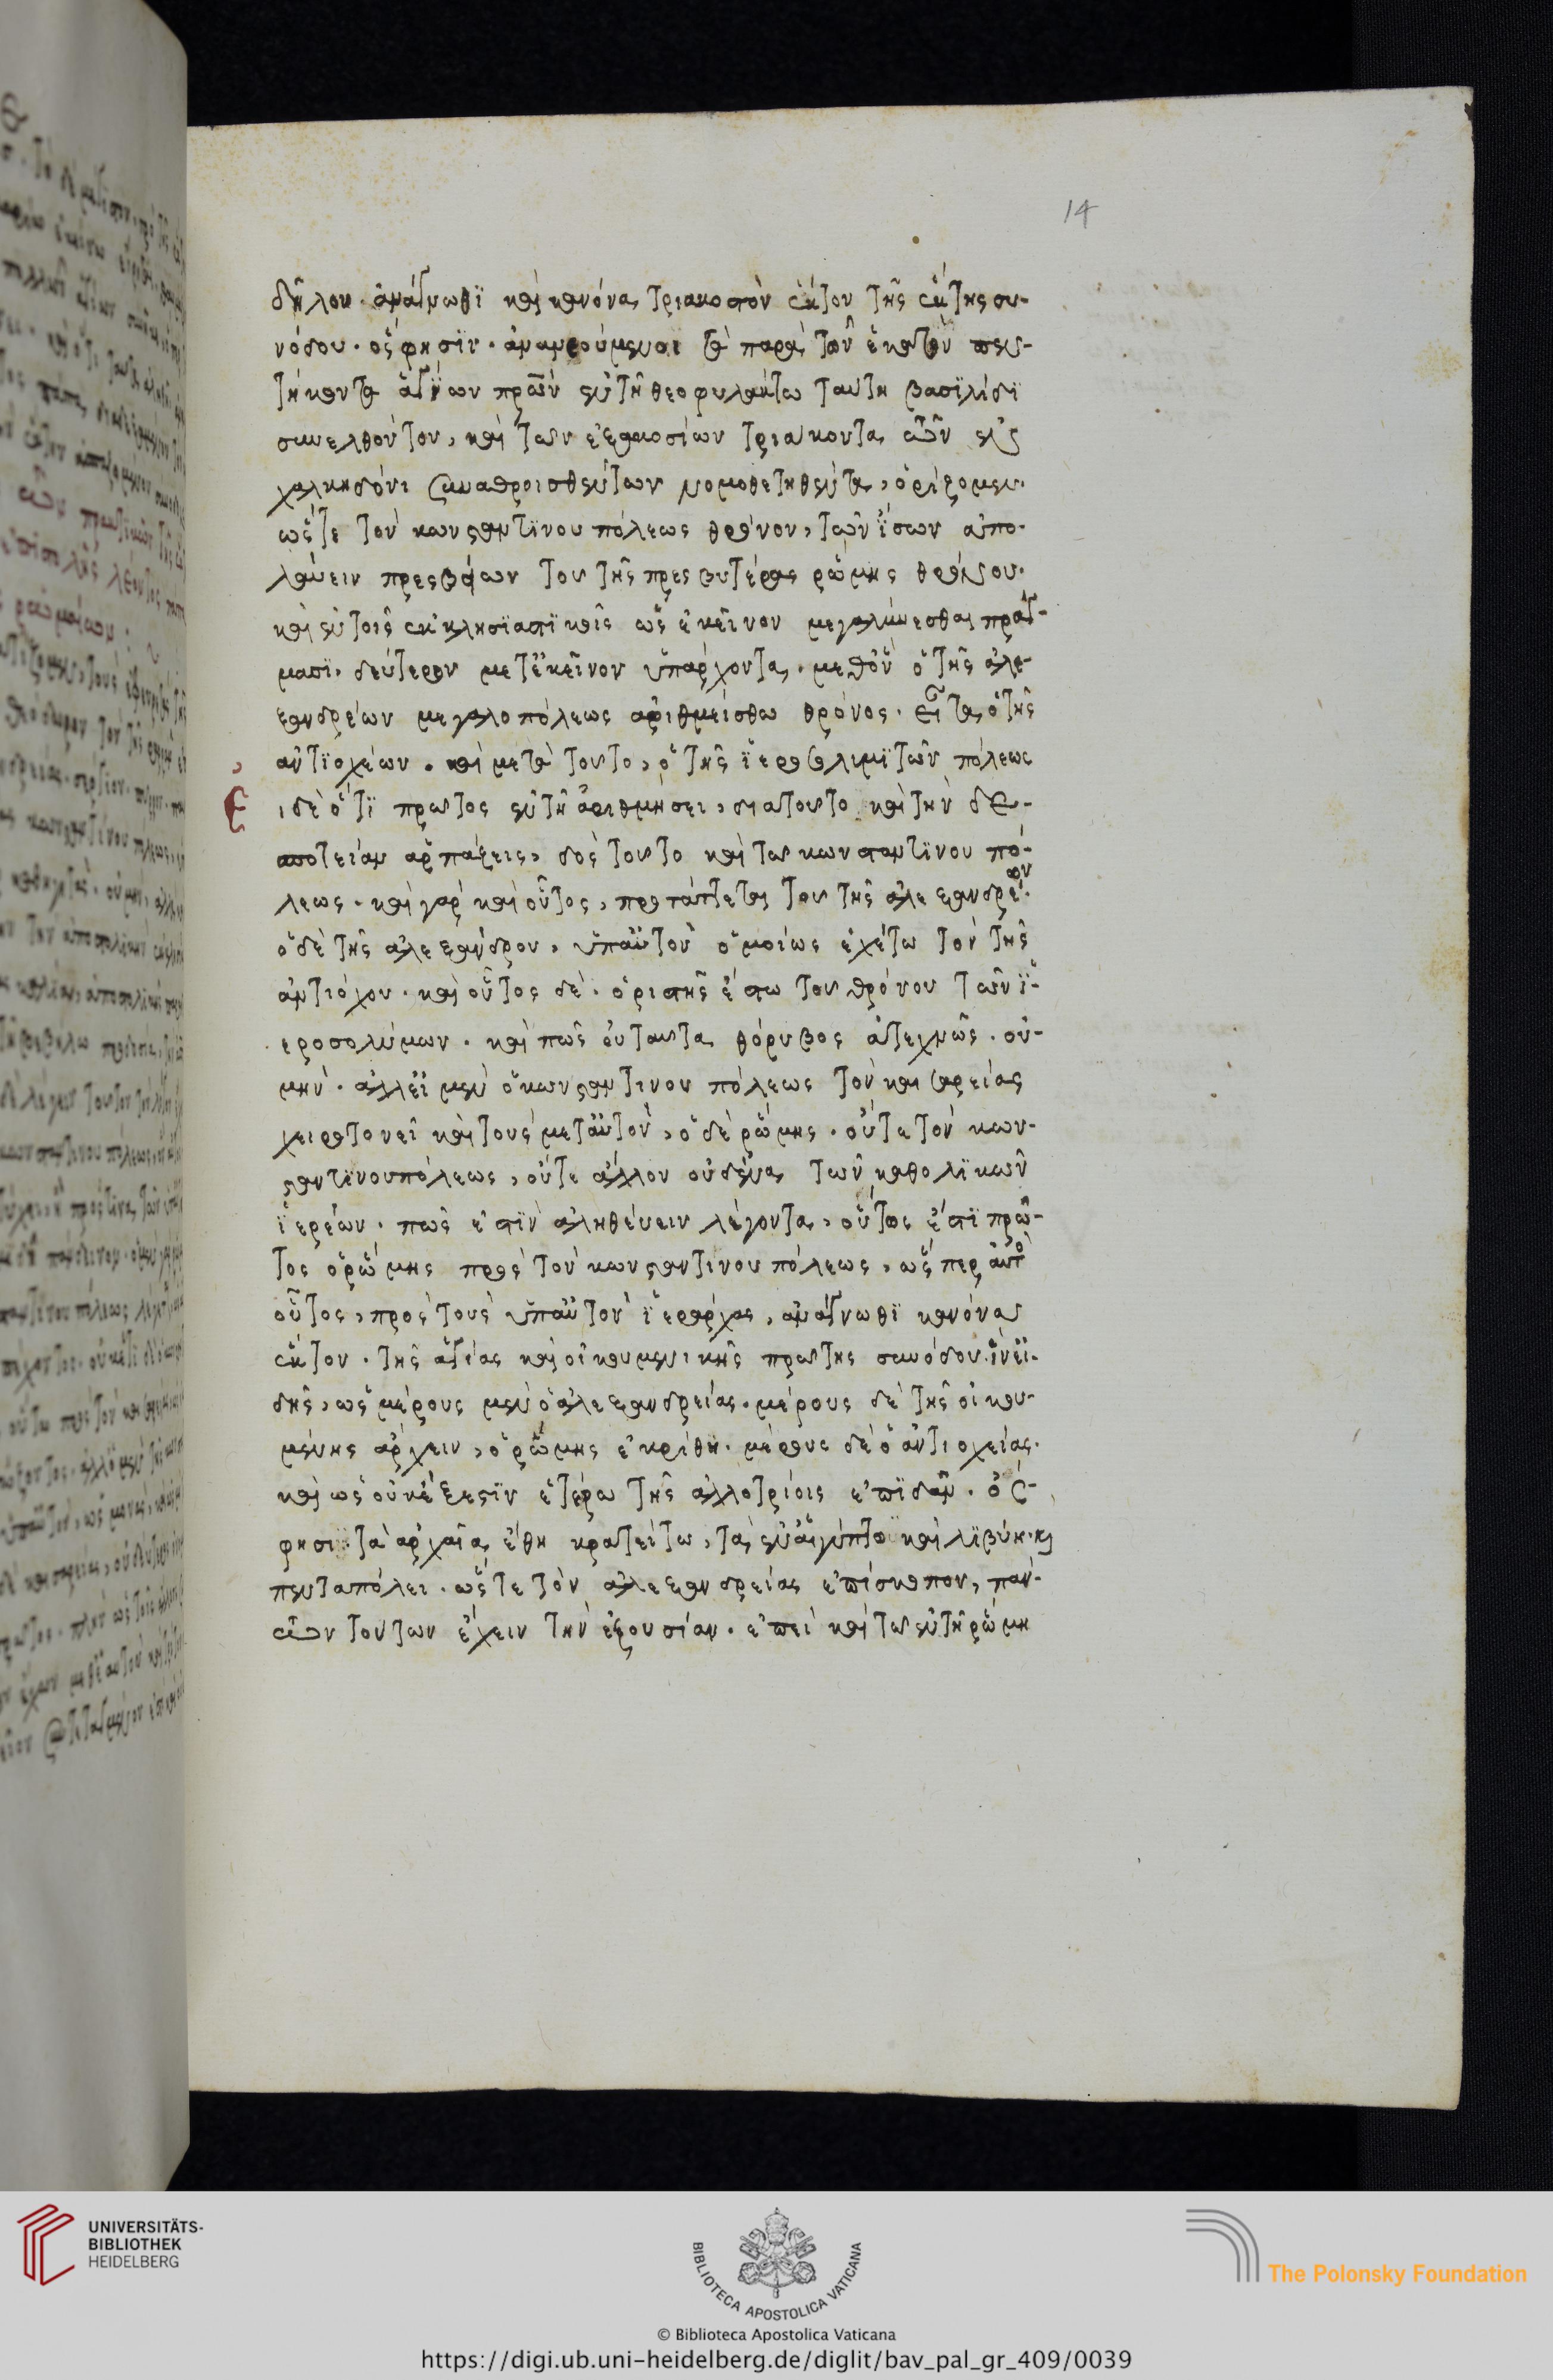 14
δῆλον. ἀνάγνωθϊ καὶ κανόνα τριακοστὸν ἕκτον τῆς ἕκτης συ-
νόδου. ὅς φησϊν. ἀνανεούμενοι τὰ παρὰ τῶν ἑκατὸν πεν-
τήκοντα ἁγΐων πρων ἐν τῆ θεοφυλάκτω ταύτη βασϊλίδϊ
συνελθόντον, καὶ των ἑξακοσίων τριάκοντα των εἰς
χαλκηδόνι συναθροισθέντων νομοθετηθέντα, ὁρίζομεν.
ὥστε τὸν κωνσταντϊνουπόλεως θρόνον, τῶν ἴσων ἀπο-
λαύειν πρεσβείων του τῆς πρεσβυτέρας ῥώμης θρόνου.
καὶ ἐν τοῖς ἐκκλησϊαστϊκοῖς ὡς ἐκεῖνον μεγαλύνεσθαι πράγ-
μασϊ. δεύτερον μετ' ἐκεῖνον ὑπάρχοντα. μεθ' ὃν ὁ τῆς ἀλε-
ξανδρέων μεγαλοπόλεως ἀριθμείσθω θρόνος. εἶτα, ὁ τῆς
ἀντϊοχέων. καὶ μετὰ τουτο, ὁ τῆς ἱεροσολυμϊτῶν πόλεως
Ει δὲ ὅτϊ πρωτος ἐν τῆ ἀριθμήσει, δια τουτο καὶ τὴν δε-
σποτείαν ἁρπάζεις, δὸς τουτο καὶ τω κωνσταντϊνουπό-
λεως. καὶ γὰρ καὶ οὗτος, προτάττεται του τῆς ἀλεξανδρέων.
ὁ δὲ τῆς ἀλεξάνδρου, ὑπ' αὐτὸν ὁμοίως ἐχέτω τὸν τῆς
ἀντιόχου. καὶ οὗτος δὲ. ὁριστὴς ἔστω του θρόνου τῶν ϊ-
εροσολύμων. καὶ πῶς οὐ ταυτα θόρυβος ἀτεχνῶς. οὐ-
μὴν. ἀλλ' εἰ μὲν ὁ κωνσταντινουπόλεως τὸν καισαρείας
χειροτονεῖ καὶ τοὺς μετ' αὐτὸν, ὁ δὲ ῥώμης. οὔτε τὸν κων-
σταντϊνουπόλεως, οὔτε ἄλλον οὐδένα τῶν καθολϊκῶν
ἱερέων. πῶς ἐστϊν ἀληθεύειν λέγοντα, οὕτως ἐστϊ πρῶ-
τος ὁ ῥώμης πρὸς τὸν κωνσταντινουπόλεως, ὥσπερ αὐτὸ
οὗτος, πρὸς τοὺς ὑπ' αὐτὸν ϊεράρχας, ἀνάγνωθϊ κανόνα
ἕκτον. τῆς ἁγίας καὶ οἰκουμενικῆς πρωτης συνόδου. ἵν' εἰ-
δῆς, ὡς μέρους μὲν ὁ ἀλεξανδρείας. μέρους δὲ τῆς οἰκου-
μένης ἄρχειν, ὁ ῥώμης ἐκρίθη. μέρους δὲ ὁ ἀντιοχείας.
καὶ ὡς οὐκ ἔξεστϊν ἑτέρω τῆς ἀλλοτρίοις ἐπϊδᾶν. ὅς
φησι. τὰ ἀρχαῖα ἔθη κρατείτω, τὰ ἐν αἰγύπτω καὶ λϊβύη. καὶ
πενταπόλει. ὥστε τὸν ἀλεξανδρείας ἐπίσκοπον, πάν-
των τούτων ἔχειν τὴν ἐξουσίαν. ἐπεὶ καὶ τω ἐν τῆ ῥώμη
UNIVERSITÄTS-
BIBLIOTHEK
HEIDELBERG
BIBLIOTECA APOSTOLICA VATICANA
The Polonsky Foundation
© Biblioteca Apostolica Vaticana
https://digi.ub.uni-heidelberg.de/diglit/bav_pal_gr_409/0039